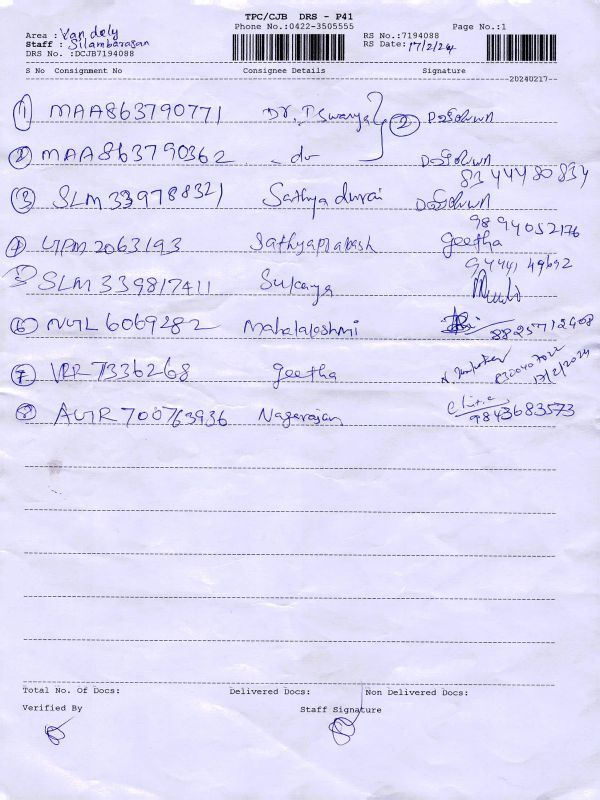 TPC/CJB DRS - P41
Phone No.:0422-3505555 Page No.:1
Area : Van dely RS No.:7194088
Staff : Silambarasan RS Date: 17/2/24
DRS No. :DCJB7194088
S No Consignment No Consignee Details Signature
20240217
1 MAA863790771 Dr. T Swarya 2
2 MAA863790362 - do
8344480834
3 SLM339788321 Sathya durai
9894052176
4 UPM2063193 Sathyaprakash geetha
94441 49692
5 SLM339817411 Sukanya
6 NGL6069282 Mahalakshmi 8825712908
7 VRR7336268 geetha 17/2/2024
8 AUR700763936 Nagarajan 9843683573
Total No. Of Docs: Delivered Docs: Non Delivered Docs:
Verified By Staff Signature